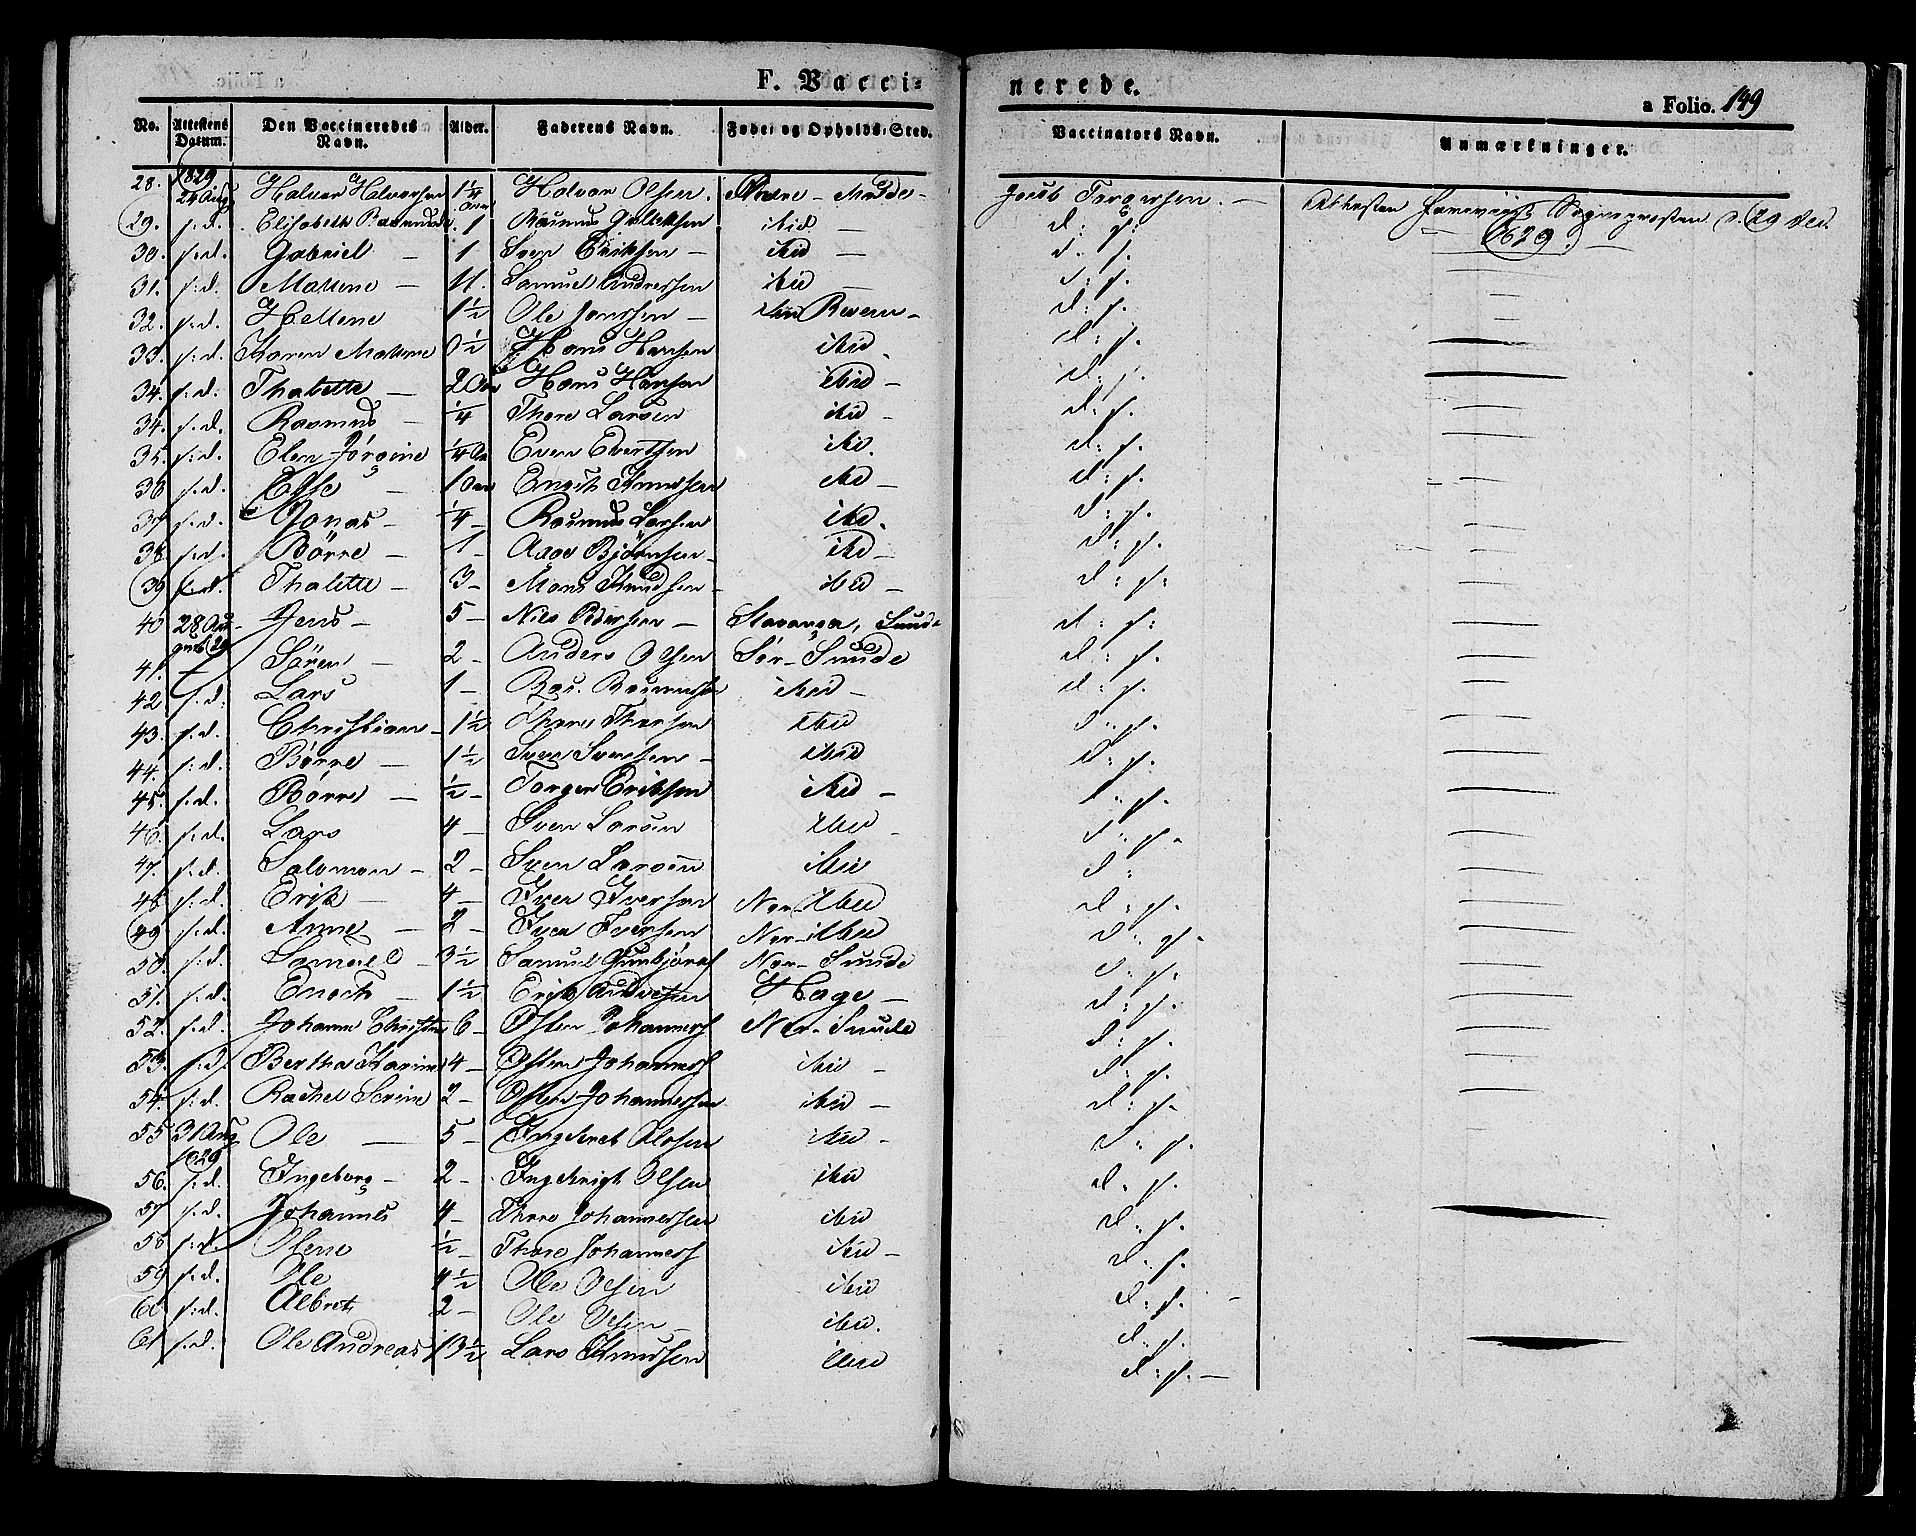 F. Vacci-
nerede.
a Folio. 149
No. Attestens Datum. Den Vaccineredes Navn. Alder. Faderens Navn. Føde- og Opholds-Sted. Vaccinators Navn. Anmærkninger.
28. 1829 24 Aug Halvor Halvorsen 1 1/4 Halvor Olsen. Jacob Torgersen. — Attesten Sogneprosten d. 29 Dec. 1829.
29. s. d. Elisabeth 1 Rasmus ibid — d: s.
30. s. d. Gabriel — 1 Sven Eriksen — ibid — d. s.
31. s. d. Mallene — 11. Samuel Andressen ibid — d: s.
32. s. d. Hellene 1 1/2 Ole Jonssen — d: s.
33. s. d. Karen Mallene 0 1/2 Hans Hansen ibid d: s.
34. s. d. Thalette — 2 Hans Hansen ibid — d: s.
34. s. d. Rasmus — 1/4 Thore Larsen ibid — d: s.
35. s. d. Elen Jörgine 1/4 Even Evertsen ibid. d: s.
36 s. d. Else — 1 Enoch Knudsen ibid — d: s.
37 s. d. Jonas — 1/4 — Rasmus Larsen ibid. d: s.
38. s. d. Börre — 1 — Aage Björnsen — ibid — d: s.
39 s. d. Thalette — 3 — Mons Knudsen — ibid d: s:
40 28 August 29 Jens — 5 — Niels Pedersen — Stavanger, Sunde d: s:
41. Sören — 2 — Anders Olsen Sør-Sunde d: s.
42 s. d. Lars 1 — Ras. Rasmussen ibid — d: s.
43. s. d. Christian — 1 1/2 Thore Thorsen ibid d: s.
44. s. d. Børre — 1 1/2 Sven Svensen — ibid d: s.
45. s. d. Børre — 1/2 — Torger Eriksen ibid — d: s.
46. s. d. Lars 4 — Sven Larsen ibid — d: s.
47. s. d. Salomon — 2 — Sven Larsen ibid d:
48. s. d. Erik — 4 — Iver Iversen Nor-ibid d: s.
49 s. d. Anne — 2 — Iver Iversen Nor-ibid d: s.
50. s. d. Samuel — 3 1/2 Samuel Gunbjörns Nor-Sunde d: s.
51. s. d. Enoch — 1 1/2 Erik Andersen Hage — d: s.
52. s. d. Johanne Christine 6 — Osten Johanness Nor-Sunde d: s.
53. s. d. Bertha Karine 4 — Osten Johanness ibid — d: s.
54. s. d. Rachel Serine 2 — Osten Johannessen ibid — d: s.
55 31 Aug 1829 Ole — 5 — Ingebret Olsen ibid — d: s.
56. s. d. Ingeborg — 2 — Ingebrigt Olsen ibid d. s.
57 s. d. Johannes 4 — Thore Johannessen ibid d: s.
58 s. d. Olene 1/2 — Thore Johanness ibid — d: s.
59 s. d. Ole 4 1/2 Ole Olsen ibid d: s.
60 s. d. Albret 2 — Ole Olsen — ibid. d: s.
61 s. d. Ole Andreas 13 1/2 Lars Knudsen ibid d: s. —